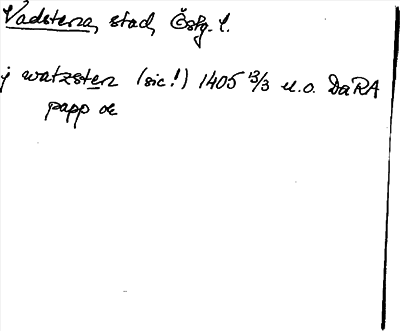 Vadstena, stad, Östg. l.
j watzsten (sic!) 1405 13/3 u.o. DaRA
papp or